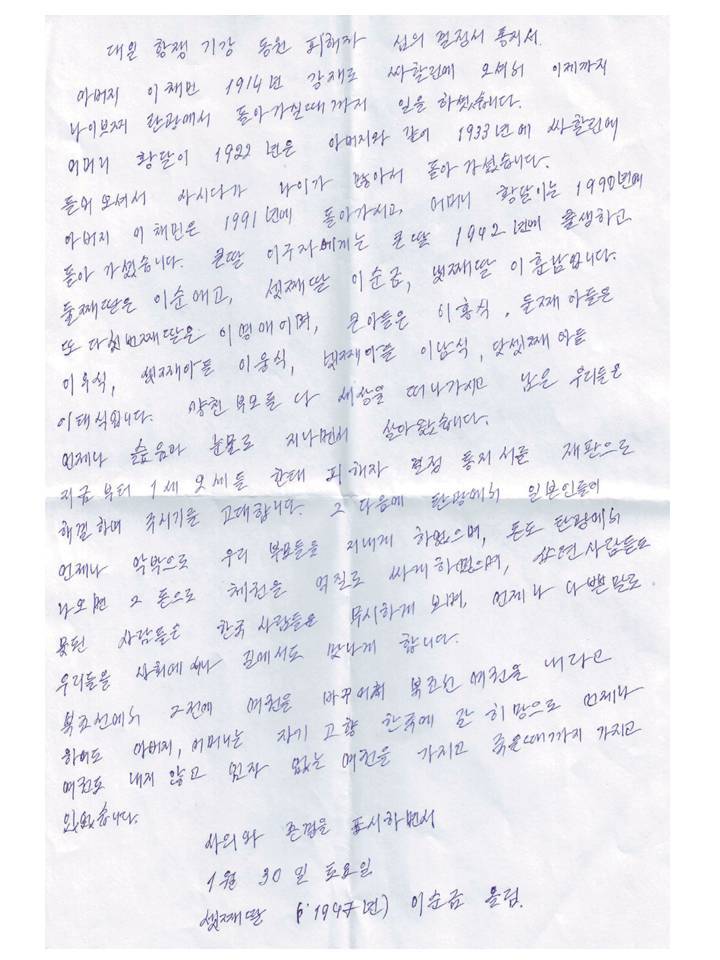 대일 항쟁 기강 동원 피해자 심의 결정서 통지서.
아버지 이채민 1914년 강재로 싸할린에 오셔서 이제까지
나이브찌 탄광에서 돌아가실때까지 일을 하셨습니다.
어머니 황달이 1922년은 아버지와 같이 1933년에 싸할린에
들어오셔서 사시다가 나이가 많아서 돌아가셨습니다.
아버지 이채민은 1991년에 돌아가시고, 어머니 황달이는 1990년에
돌아가셨습니다. 큰딸 이구자에게는 큰딸 1942년에 출생하고
둘째딸은 이순애고, 셋째딸 이순금, 넷째딸 이훈남입니다.
또 다섯번째딸은 이영애이며, 큰아들은 이홍식, 둘째아들은
이우식, 셋째아들 이웅식, 넷째아들 이남식, 닷셋째 아들
이태식입니다. 양친 부모들 다 세상을 떠나가시고 남은 우리들은
언제나 슲음과 눈물로 지나면서 살아왔습니다.
지금부터 1세 2세들 한태 피해자 결정 통지서를 재판으로
해결하며 주시기를 고대합니다. 그 다음에 탄광에서 일본인들이
언제나 악박으로 우리 부모들을 지내게 하였으며, 돈도 탄광에서
나오면 그 돈으로 채권을 억질로 싸게하였으며, 쏘련사람들도
못된 사람들은 한국 사람들은 무시하게 보며, 언제나 나쁜말로
우리들을 사회에서나 길에서도 맞나게 합니다.
북조선에서 그전에 여권을 바꾸어서 북조선 여권을 내라고
하여도 아버지, 어머니는 자기 고향 한국에 갈 히망으로 언제나
여권도 내지 않고 임자 없는 여권을 가지고 죽을때까지 가지고
있었습니다.
사의와 존경을 표시하면서
1월 30일 토요일
셋째딸 (1947년) 이순금 올림.